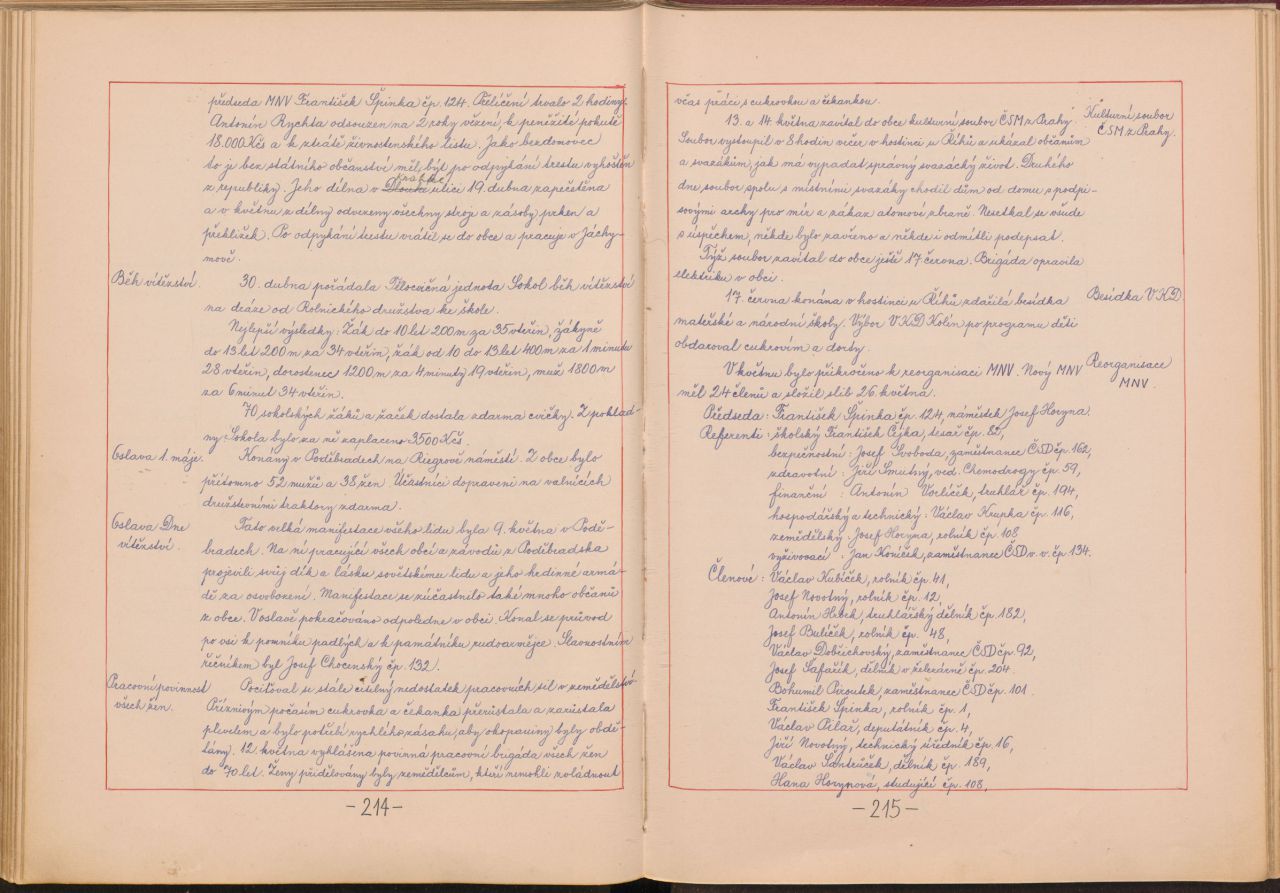 předseda MNV František Špinka čp. 124. Přelíčení trvalo 2 hodiny.
Antonín Rychta odsouzen na 2 roky vězení, k peněžité pokutě
18.000 Kčs a k ztrátě živnostenského listu. Jako bezdomovec
to je bez státního občanství měl být po odpykání trestu vyhoštěn
z republiky. Jeho dílna v Dlouhé krátké ulici 19. dubna zapečetěna
a v květnu z dílny odvezeny všechny stroje a zásoby prken a
překližek. Po odpykání trestu vrátil se do obce a pracuje v Jáchy-
mově.
Běh vítězství.
30. dubna pořádala Tělocvičná jednota Sokol běh vítězství
na dráze od Rolnického družstva ke škole.
Nejlepší výsledky: Žák do 10 let 200 m za 35 vteřin, žákyně
do 13 let 200 m za 34 vteřin, žák od 10 do 13 let 400 m za 1 minutu
28 vteřin, dorostenec 1200 m za 4 minuty 19 vteřin, muž 1800 m
za 6 minut 34 vteřin.
70 sokolských žáků a žaček dostala zdarma cvičky. Z poklad-
ny Sokola bylo za ně zaplaceno 3500 Kčs.
Oslava 1. máje.
Konány v Poděbradech na Riegrově náměstí. Z obce bylo
přítomno 52 mužů a 38 žen. Účastníci dopraveni na valnících
družstevními traktory zdarma.
Oslava Dne
vítězství.
Tato velká manifestace všeho lidu byla 9. května v Podě-
bradech. Na ní pracující všech obcí a závodů z Poděbradska
projevili svůj dík a lásku sovětskému lidu a jeho hrdinné armá-
dě za osvobození. Manifestace se zúčastnilo také mnoho občanů
z obce. V oslavě pokračováno odpoledne v obci. Konal se průvod
po vsi k pomníku padlých a k památníku rudoarmějce. Slavnostním
řečníkem byl Josef Chocenský čp. 132.
Pracovní povinnost
všech žen.
Pociťoval se stále citelný nedostatek pracovních sil v zemědělství.
Příznivým počasím cukrovka a čekanka přerůstala a zarůstala
plevelem a bylo potřebí rychlého zásahu, aby okopaniny byly obdě-
lány. 12. května vyhlášena povinná pracovní brigáda všech žen
do 70 let. Ženy přidělovány byly zemědělcům, kteří nemohli zvládnout
-214-
včas práci s cukrovkou a čekankou.
Kulturní soubor
ČSM z Prahy.
13. a 14. května zavítal do obce kulturní soubor ČSM z Prahy.
Soubor vystoupil v 8 hodin večer v hostinci u Říhů a ukázal občanům
a svazákům, jak má vypadat správný svazácký život. Druhého
dne soubor spolu s místními svazáky chodil dům od domu s podpi-
sovými archy pro mír a zákaz atomové zbraně. Nesetkal se všude
s úspěchem, někde bylo zavřeno a někde i odmítli podepsat.
Týž soubor zavítal do obce ještě 17. června. Brigáda opravila
elektriku v obci.
Besídka VKD
17. června konána v hostinci u Říhů zdařilá besídka
mateřské a národní školy. Výbor VKD Kolín po programu děti
obdaroval cukrovím a dorty.
Reorganisace
MNV.
V květnu bylo přikročeno k reorganisaci MNV. Nový MNV
měl 24 členů a složil slib 26. května.
Předseda: František Špinka čp. 124, náměstek Josef Horyna.
Referenti: školský František Cejka, tesař čp. 82,
bezpečnostní: Josef Svoboda, zaměstnanec ČSD čp. 162,
zdravotní: Jiří Smutný, ved. Chemodrogy čp. 59,
finanční: Antonín Vorlíček, truhlář čp. 194,
hospodářský a technický: Václav Krupka čp. 116,
zemědělský: Josef Horyna, rolník čp. 108
vyživovací: Jan Koníček, zaměstnanec ČSD v. v. čp. 134.
Členové: Václav Kubíček, rolník čp. 41,
Josef Novotný, rolník čp. 12,
Antonín Hrbek, truhlářský dělník čp. 182,
Josef Bulíček, rolník čp. 48,
Václav Dobřichovský, zaměstnanec ČSD čp. 92,
Josef Šafařík, dělník v železárně čp. 204.
Bohumil Piroutek, zaměstnanec ČSD čp. 101.
František Špinka, rolník čp. 1,
Václav Pilař, deputátník čp. 4,
Jiří Novotný, technický úředník čp. 16,
Václav Šantrůček, dělník čp. 189,
Hana Horynová, studující čp. 108,
-215-